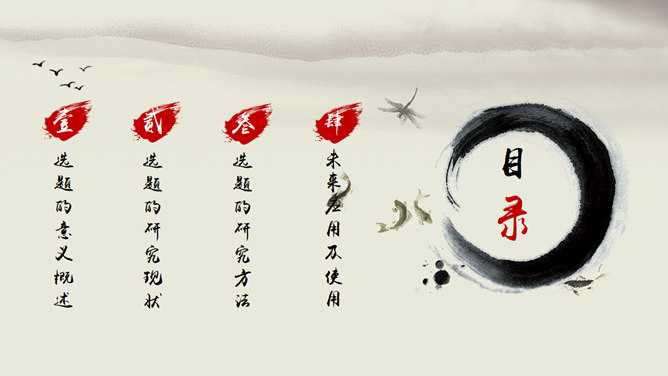 目录
壹
选题的意义概述
贰
选题的研究现状
叁
选题的研究方法
肆
未来应用及使用